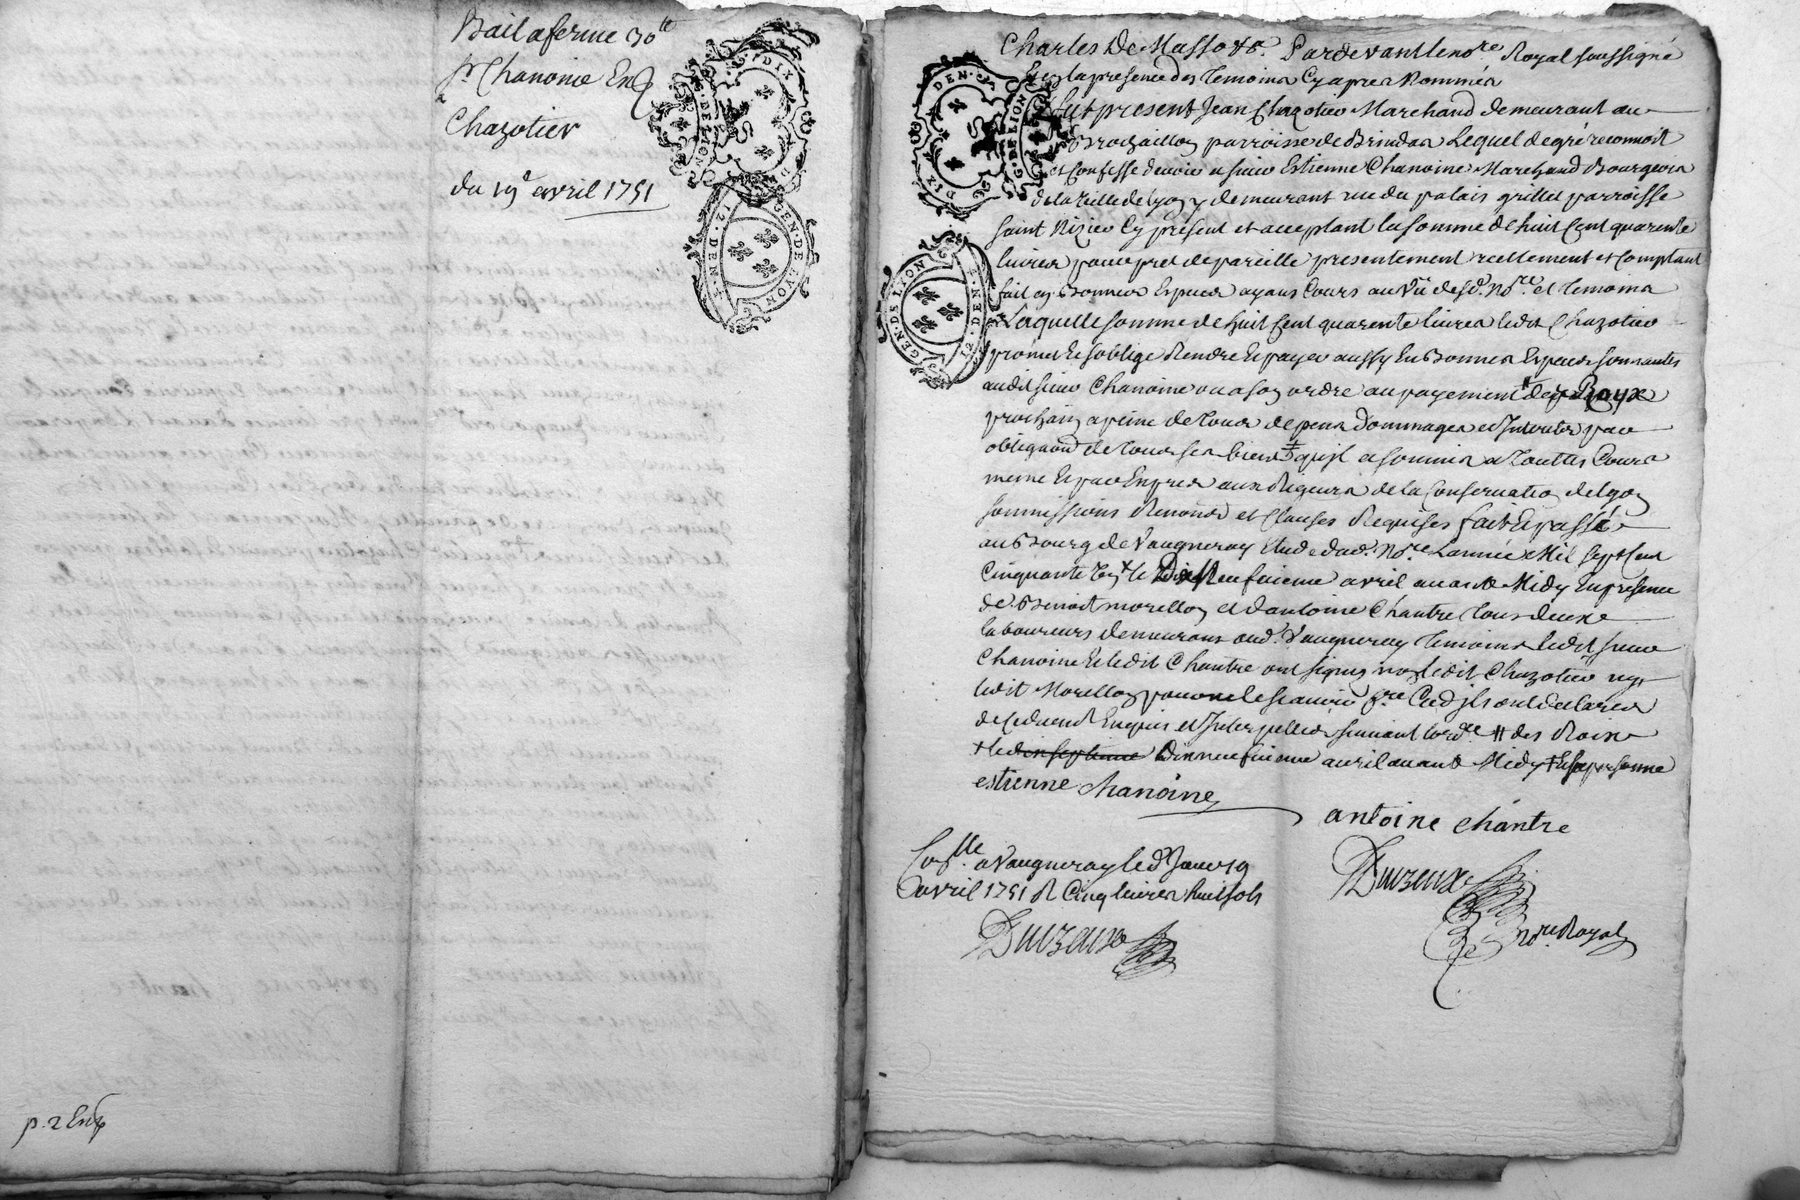 Bail a ferme 30te
Sr. Chanoine
a
Chazotier
du 19e avril 1751
p. 2
Charles De Masso &a. Pardevant le nore. Royal soussigné
Et en la presence des Temoins Cy apres Nommés
fut present Jean Chazotier Marchand demeurant au
parroisse de Brindas Lequel de gré reconnoit
et Confesse devoir a sieur Estienne Chanoine Marchand Bourgeois
de la Ville de Lyon y demeurant rue du palais grillet parroisse
saint Nizier Cy present et acceptant la somme de huit Cent quarente
livres pour pret de pareille presentement reellement et Comptant
fait en Bonnes Especes ayans Cours au Vû desd. Nore. et Temoins
Laquelle somme de huit Cent quarente livres ledit Chazotier
promet Et s'oblige Rendre Et payer aussy En Bonnes Especes sonnantes
audit sieur Chanoine ou a son ordre au payement des Roys
prochain a peine de tous depens Dommages et Interets par
obligaon de tous ses biens ‡ qu'il a soumis a Touttes Cours
meme Et par Exprés aux Rigueurs de la Conservation de Lyon
soumissions Renonons et Clauses Requises fait Et passé
au Bourg de Vaugneray Etude dud. Nore. L'année Mil sept Cent
Cinquante Un & le Dix Neufvieme avril avant Midy En presence
de Benoit morellon et d'antoine Chantre Tous deux
laboureurs demeurans aud. Vaugneray Temoins ledit sieur
Chanoine Et ledit Chantre ont signés non ledit Chazotier ny
ledit Morellon pour ne le sçavoir fre. Ce qu'ils ont declarés
de ce duement Enquis et Interpellés suivant l'ordce. # des Rois
+ le dixseptieme Dixneufvieme avril avant Midy ‡ Et sa personne
estienne chanoine
antoine chantre
Conlle. a Vaugneray led. Jour 19
avril 1751 R Cinq livres huit sols
Duizeux
Duizeux
Nore. Royal
GEN. DE LION
DIX DEN.
GEN. DE LYON
12. DEN.
DIX DEN.
GEN. DE LION
GEN. DE LION
12. DEN.